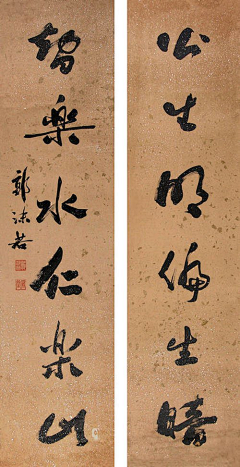 公生明偏生暗
智樂水仁樂山
郭沫若